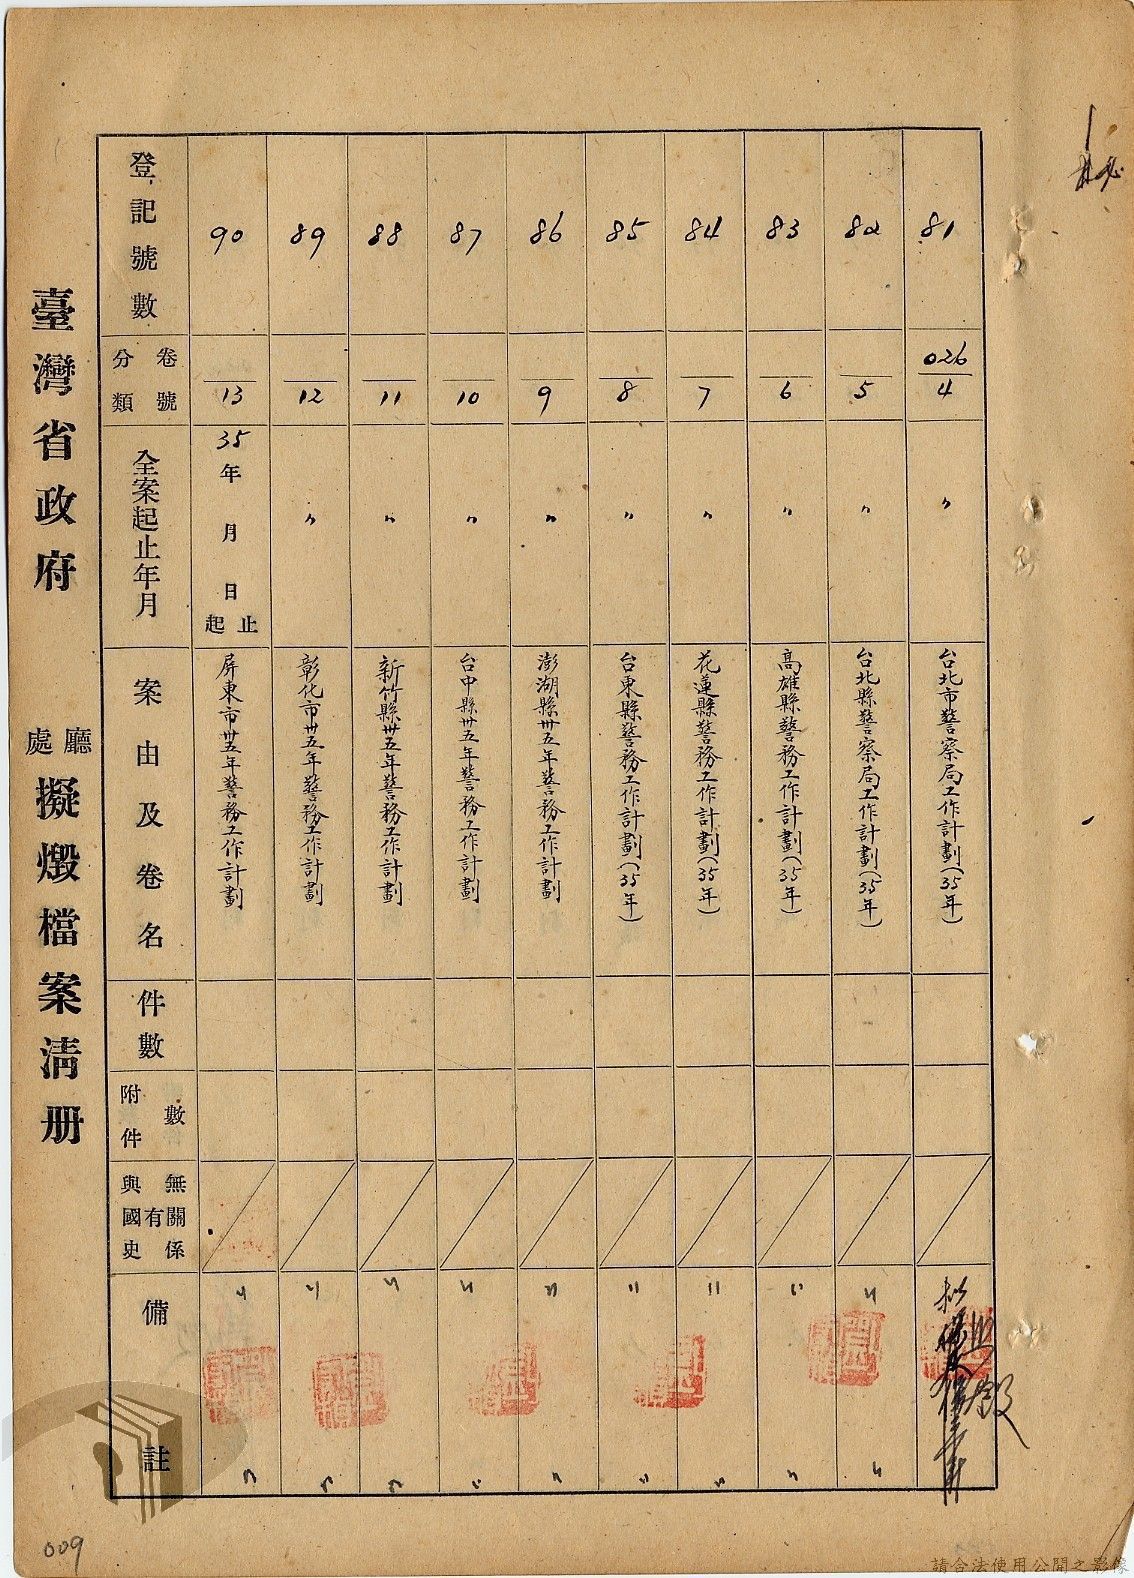 臺灣省政府 廳處 擬燬檔案清册
登記號數
分類 卷號
全案起止年月
案由及卷名
件數
附件數
與國史有無關係
備註
81
026
4
〃
台北市警察局工作計劃(35年)
82
5
〃
台北縣警察局工作計劃(35年)
〃
〃
83
6
〃
高雄縣警務工作計劃(35年)
〃
〃
84
7
〃
花蓮縣警務工作計劃(35年)
〃
〃
85
8
〃
台東縣警務工作計劃(35年)
〃
〃
86
9
〃
澎湖縣卅五年警務工作計劃
〃
〃
87
10
〃
台中縣卅五年警務工作計劃
〃
〃
88
11
〃
新竹縣卅五年警務工作計劃
〃
〃
89
12
〃
彰化市卅五年警務工作計劃
〃
〃
90
13
35年 月 日 起止
屏東市卅五年警務工作計劃
〃
〃
009
請合法使用公開之影像